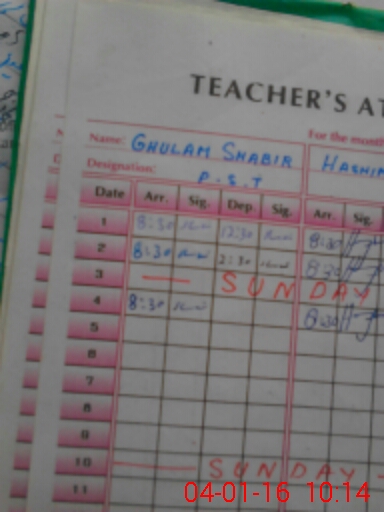 TEACHER'S AT
Name: GHULAM SHABIR
For the month
HASHIM
Designation: P.S.T
Date Arr. Sig. Dep. Sig. Arr. Sig.
1 8:30 12:30 8:30
2 8:30 2:30 8:30
3 SUNDAY
4 8:30 8:30
5
6
7
8
9
10 SUNDAY
11
04-01-16 10:14